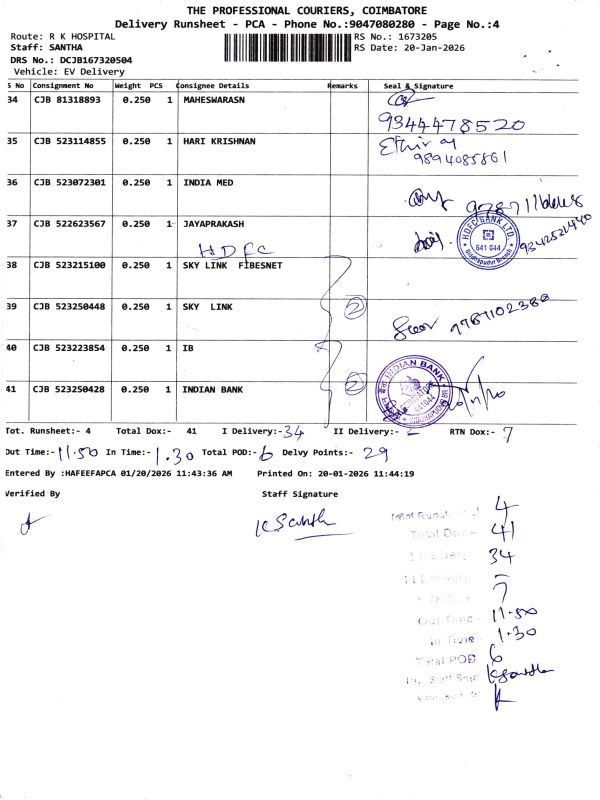 THE PROFESSIONAL COURIERS, COIMBATORE
Delivery Runsheet - PCA - Phone No.:9047080280 - Page No.:4
Route: R K HOSPITAL RS No.: 1673205
Staff: SANTHA RS Date: 20-Jan-2026
DRS No.: DCJB167320504
Vehicle: EV Delivery
S No Consignment No Weight PCS Consignee Details Remarks Seal & Signature
34 CJB 81318893 0.250 1 MAHESWARASN
9344478520
35 CJB 523114855 0.250 1 HARI KRISHNAN
9894085861
36 CJB 523072301 0.250 1 INDIA MED
37 CJB 522623567 0.250 1 JAYAPRAKASH
HDFC BANK LTD.
641 044
9342521440
HDFC
38 CJB 523215100 0.250 1 SKY LINK FIBESNET
39 CJB 523250448 0.250 1 SKY LINK
2
9787102380
40 CJB 523223854 0.250 1 IB
41 CJB 523250428 0.250 1 INDIAN BANK
2
INDIAN BANK
Tot. Runsheet:- 4 Total Dox:- 41 I Delivery:-34 II Delivery:- RTN Dox:- 7
Out Time:-11.50 In Time:-1.30 Total POD:-6 Delvy Points:- 29
Entered By :HAFEEFAPCA 01/20/2026 11:43:36 AM Printed On: 20-01-2026 11:44:19
Verified By Staff Signature
K Santha
4
Total Dox 41
I Delivery 34
II Delivery -
7
Out Time 11.50
In Time 1.30
Total POD 6
KSantha